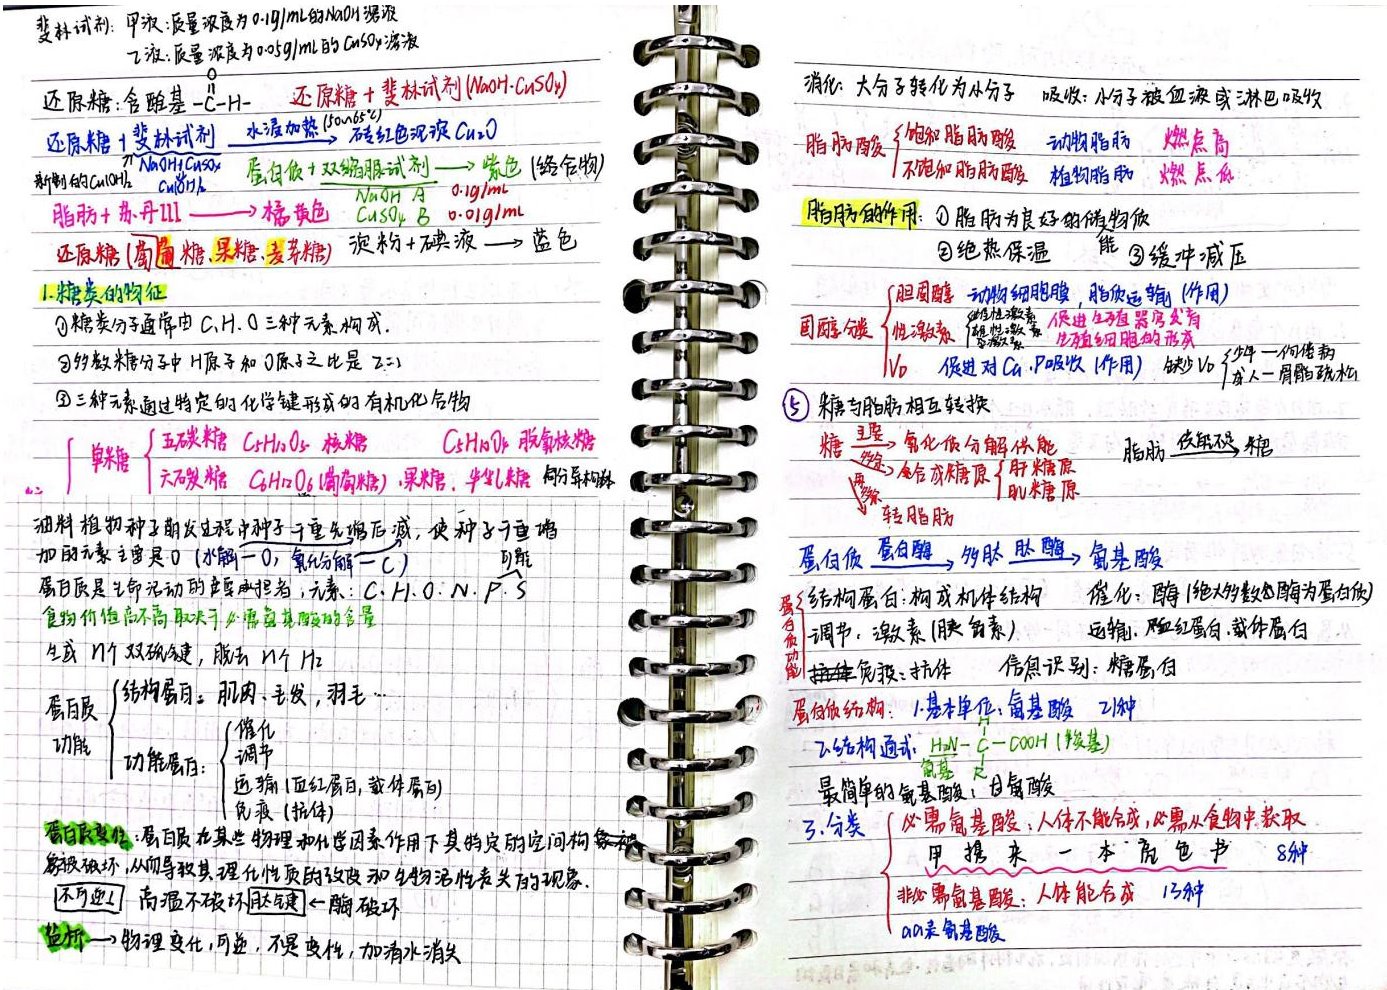 斐林试剂: 甲液:质量浓度为0.1g/mL的NaOH溶液
乙液:质量浓度为0.05g/mL的CuSO4溶液
还原糖:含醛基 -C-H- 还原糖+斐林试剂(NaOH·CuSO4)
O
还原糖+斐林试剂 水浴加热(50~65℃) 砖红色沉淀Cu2O
新制的Cu(OH)2 NaOH+CuSO4
Cu(OH)2
蛋白质+双缩脲试剂→紫色(络合物)
NaOH A 0.1g/mL
CuSO4 B 0.01g/mL
脂肪+苏丹III→橘黄色
还原糖(葡萄糖、果糖、麦芽糖) 淀粉+碘液→蓝色
1.糖类的特征
①糖类分子通常由C、H、O三种元素构成.
②多数糖分子中H原子和O原子之比是2:1
③三种元素通过特定的化学键形成的有机化合物
单糖 五碳糖 C5H10O5 核糖 C5H10O4 脱氧核糖
六碳糖 C6H12O6(葡萄糖)、果糖、半乳糖 同分异构体
油料植物种子萌发过程中种子干重先增后减,使种子干重增
加的元素主要是O(水解—O,氧化分解—C)
可能
蛋白质是生命活动的主要承担者,元素:C、H、O、N、P、S
食物价值高不高取决于必需氨基酸的含量
生成n个双硫键,脱去n个H2
蛋白质功能 结构蛋白:肌肉、毛发,羽毛…
功能蛋白: 催化
调节
运输(血红蛋白,载体蛋白)
免疫(抗体)
蛋白质变性:蛋白质在某些物理和化学因素作用下其特定的空间构
象被破坏,从而导致其理化性质的改变和生物活性丧失的现象.
不可逆 高温不破坏肽键←酶破坏
盐析→物理变化,可逆,不是变性,加清水消失
消化:大分子转化为小分子 吸收:小分子被血液或淋巴吸收
脂肪酸 饱和脂肪酸 动物脂肪 燃点高
不饱和脂肪酸 植物脂肪 燃点低
脂肪的作用:①脂肪为良好的储能物质
②绝热保温 ③缓冲减压
固醇分类 胆固醇 动物细胞膜,脂质运输(作用)
性激素 雄性激素 雌性激素 孕激素 促进生殖器官发育
生殖细胞的形成
VD 促进对Ca、P吸收(作用) 缺少VD 少年—佝偻病
成人—骨质疏松
⑤ 糖与脂肪相互转换
糖 主要→氧化质分解供能 脂肪 供能不足→糖
多余→合成糖原 肝糖原
肌糖原
再多余→转脂肪
蛋白质 蛋白酶→多肽 肽酶→氨基酸
蛋白质功能 结构蛋白:构成机体结构 催化:酶(绝大多数的酶为蛋白质)
调节:激素(胰岛素) 运输:血红蛋白、载体蛋白
免疫:抗体 信息识别:糖蛋白
蛋白质结构: 1.基本单位:氨基酸 21种
H
2.结构通式: H2N-C-COOH(羧基)
氨基 R
最简单的氨基酸:甘氨酸
3.分类 必需氨基酸:人体不能合成,必需从食物中获取
甲携来一本亮色书 8种
非必需氨基酸:人体能合成 13种
aa表氨基酸